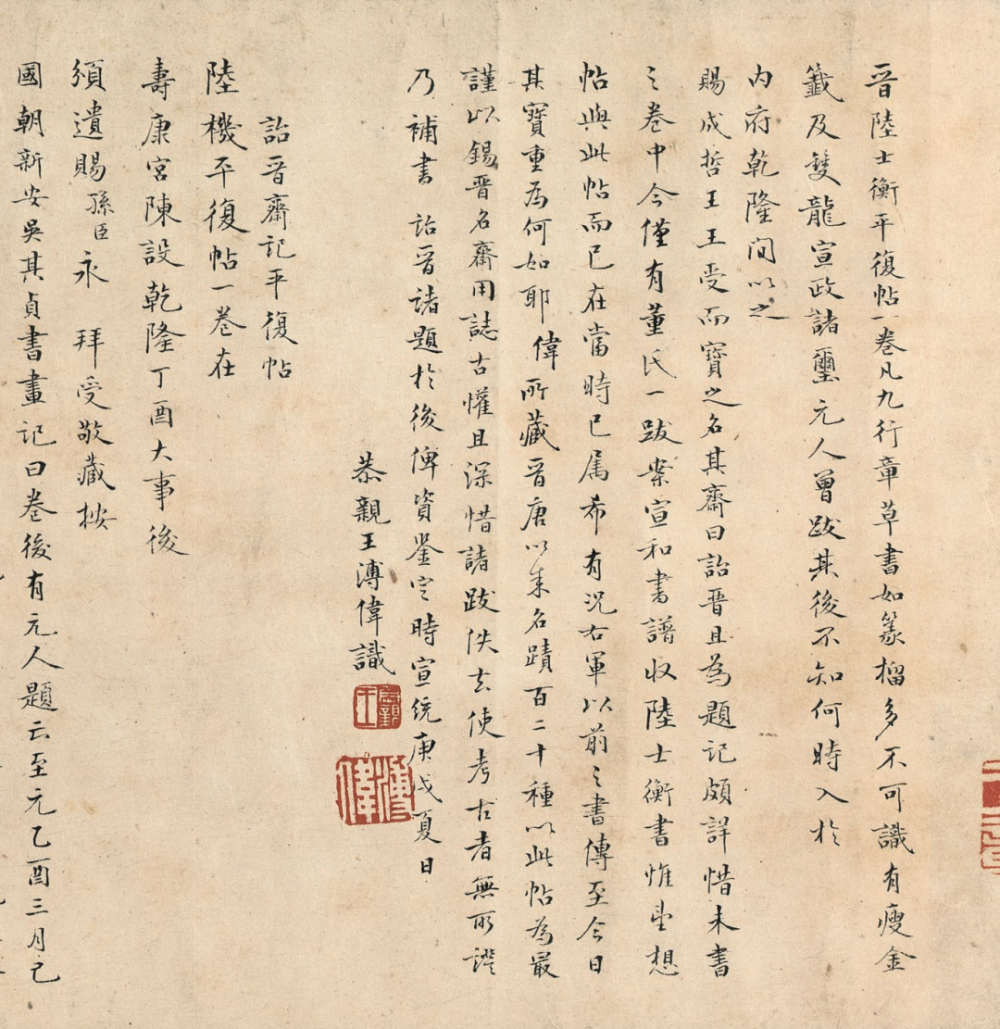 晉陸士衡平復帖一卷凡九行章草書如篆榴多不可識有瘦金
籤及雙龍宣政諸璽元人曾跋其後不知何時入於
內府乾隆間以之
賜成哲王王受而寶之名其齋曰詒晉且為題記頗詳惜未書
之卷中今僅有董氏一跋案宣和書譜收陸士衡書惟望想
帖與此帖而已在當時已屬希有況右軍以前之書傳至今日
其寶重為何如耶偉所藏晉唐以來名蹟百二十種以此帖為最
謹以錫晉名齋用誌古懽且深惜諸跋佚去使考古者無所證
乃補書詒晉諸題於後俾資鑒定時宣統庚戌夏日
恭親王溥偉識
恭親王
溥偉
詒晉齋記平復帖
陸機平復帖一卷在
壽康宮陳設乾隆丁酉大事後
頒遺賜孫臣永拜受敬藏按
國朝新安吳其貞書畫記曰卷後有元人題云至元乙酉三月己